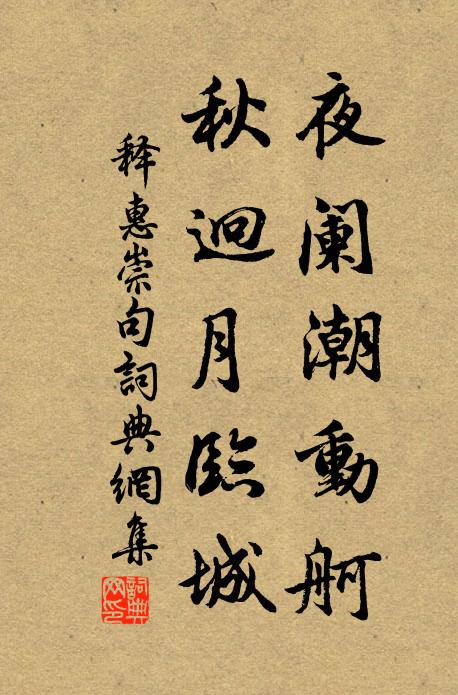 夜阑潮動舸
秋迥月臨城
释惠崇句詞典網集
詞典
网印